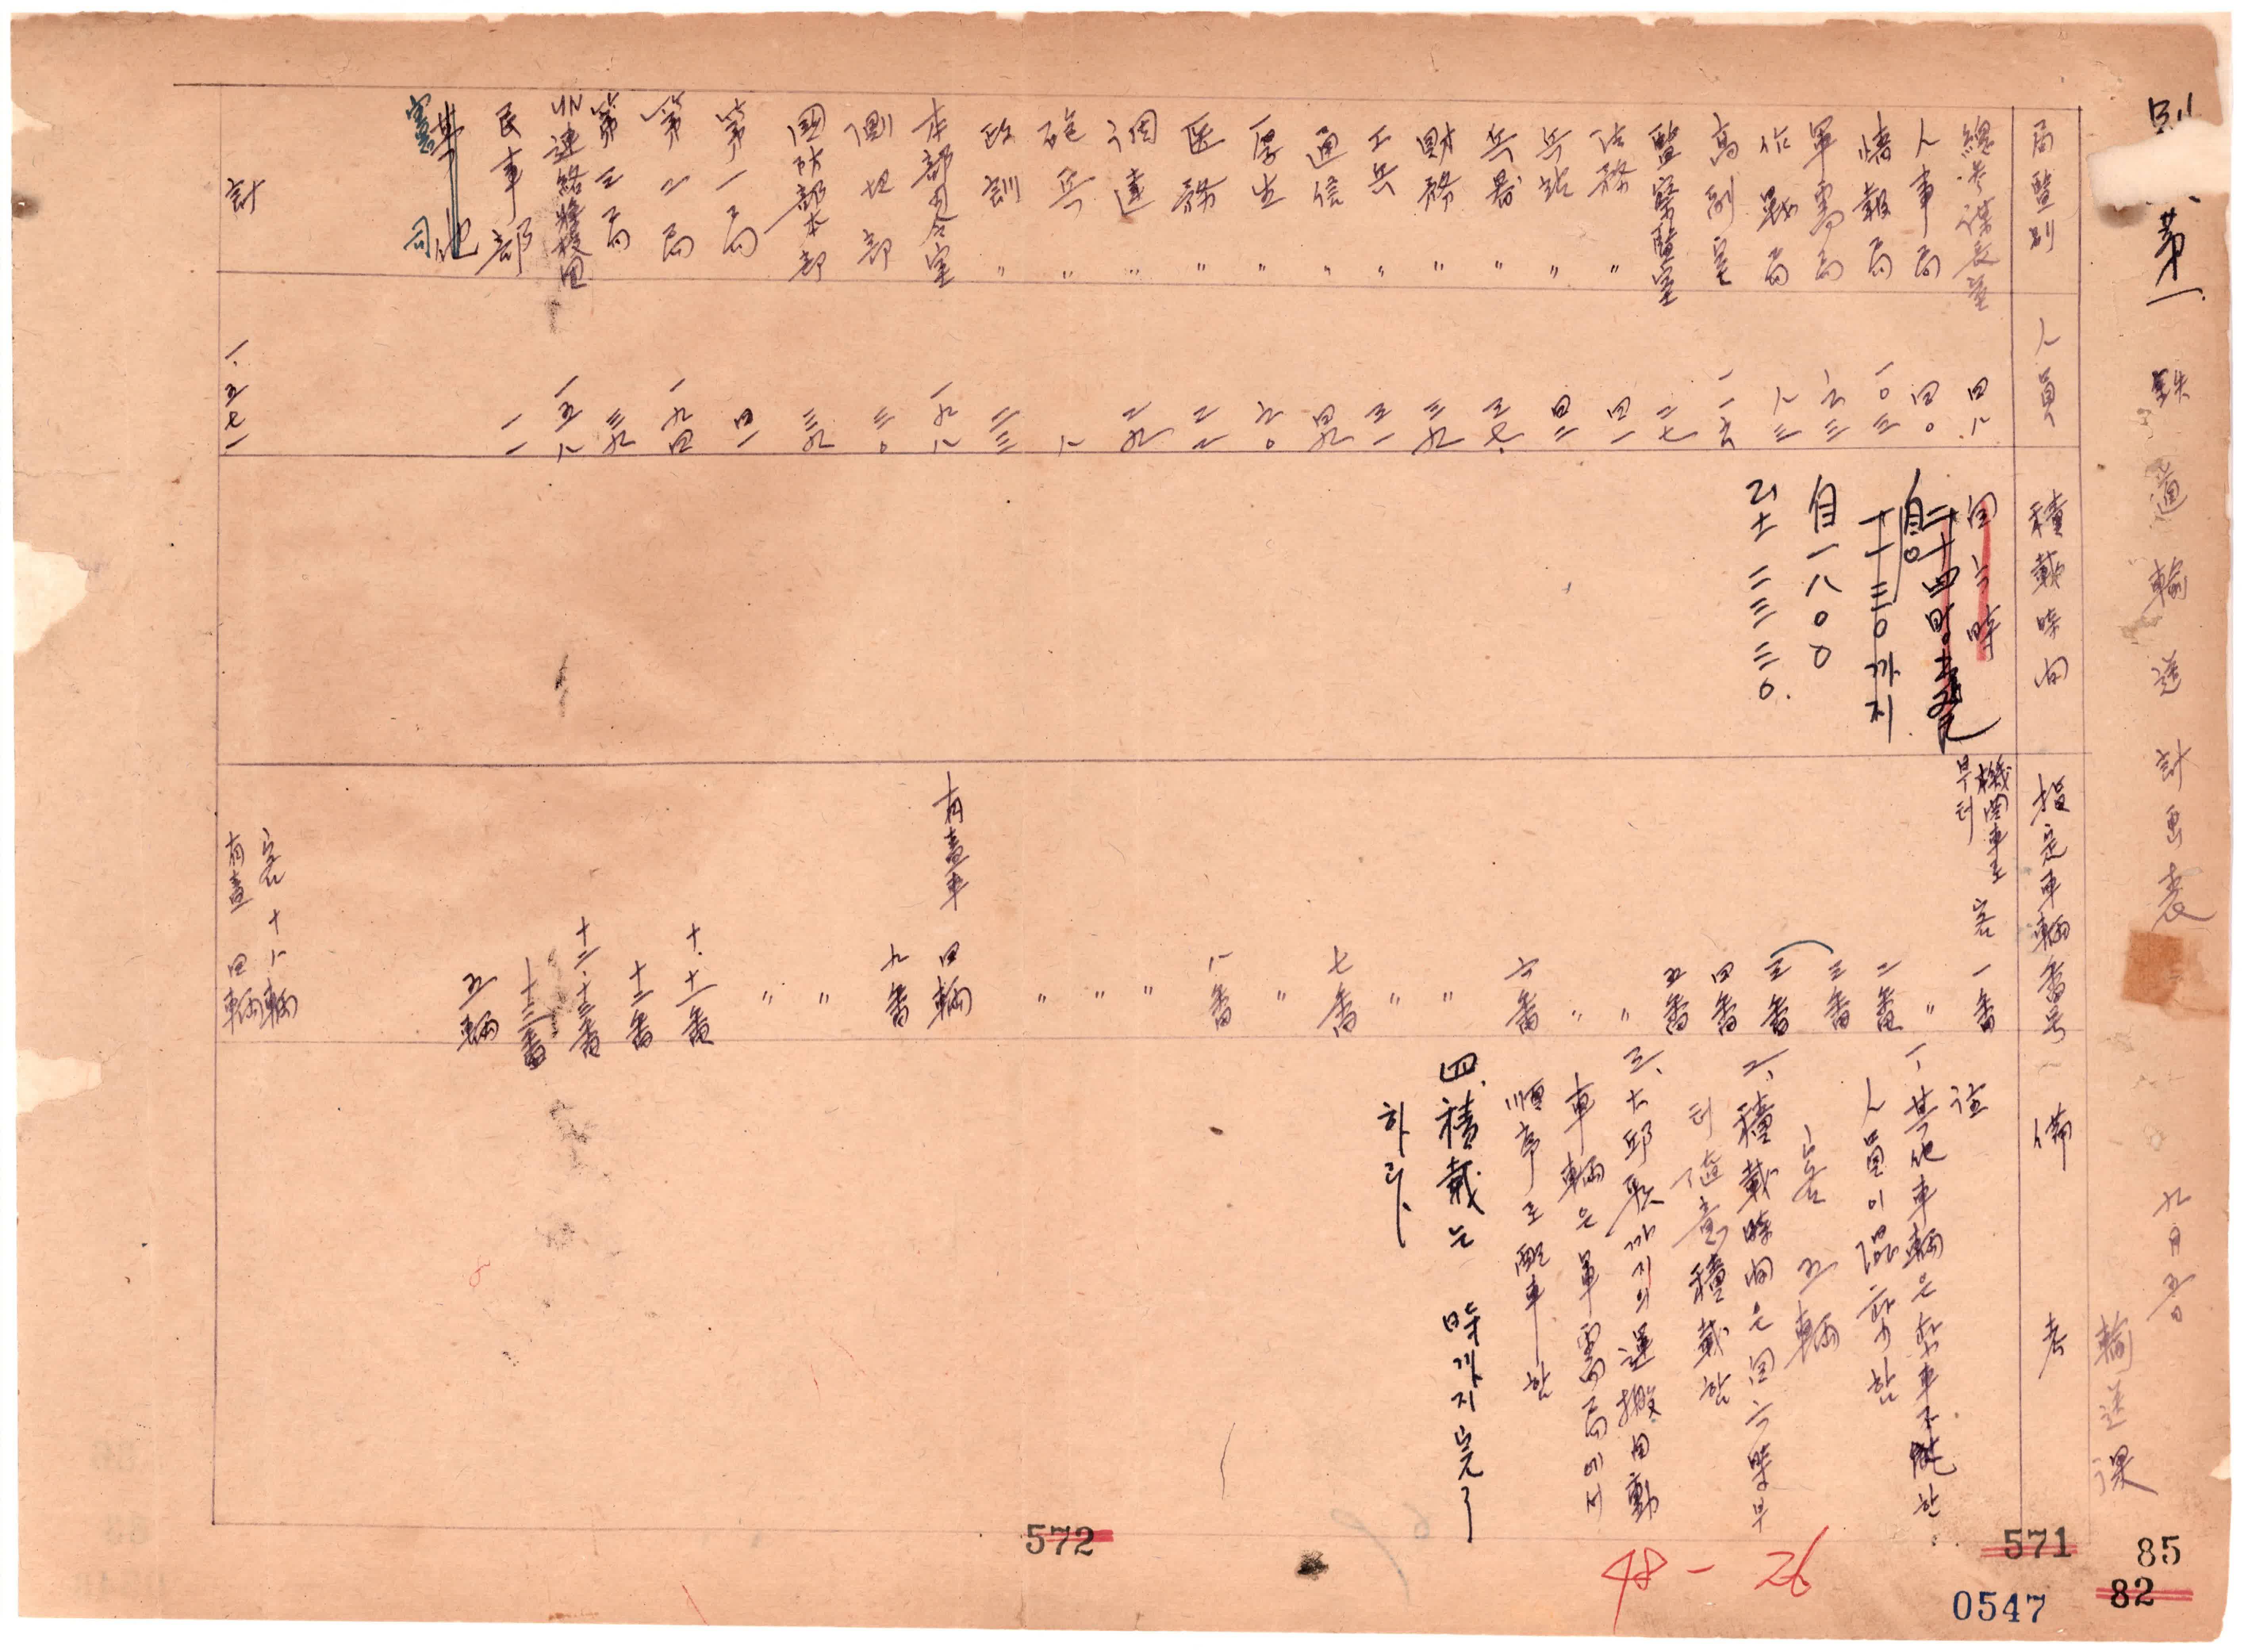 別 第一 鉄道輸送計画表 九月五日
輸送課
局監別 人員 積載時間 指定車輌番号 備考
總參謀長室 四八 自六時 機関車로부터 客 一番
人事局 四〇 〃
情報局 一〇三 二番
軍需局 六三 三番
作戰局 八三 三番
高副室 一一六 四番
監察監室 二七 五番
法務 〃 四一 〃
兵站 〃 四二 〃
兵器 〃 三七 六番
財務 〃 三九 〃
工兵 〃 三一 〃
通信 〃 四九 七番
厚生 〃 六〇 〃
医務 〃 二二 八番
調達 〃 二九 〃
砲兵 〃 八 〃
政訓 〃 二三 〃
本部司令室 一九八 有蓋車 四輌
測地部 三〇 九番
國防部本部 三九 〃
第一局 四一 〃
第二局 一九四 十.十一番
第三局 三九 十二番
UN連絡將校団 一五八 十二.十三番
民事部 一一 十三番
其他 五輌
憲 司
計 一.五七一 客 十八輌
有蓋 四輌
十一三〇까지
自一八〇〇
至 二三三〇.
註
一、其他車輌은 乘車不能한
人員이 混乘함
客 五輌
二、積載時間은 自六時부
터 隨意積載함
三、大邱驛까지의 運搬自動
車輌은 軍需局에서
順序로 配車함
四、積載는 時까지完了
하라
572
571
48-26
85
82
0547